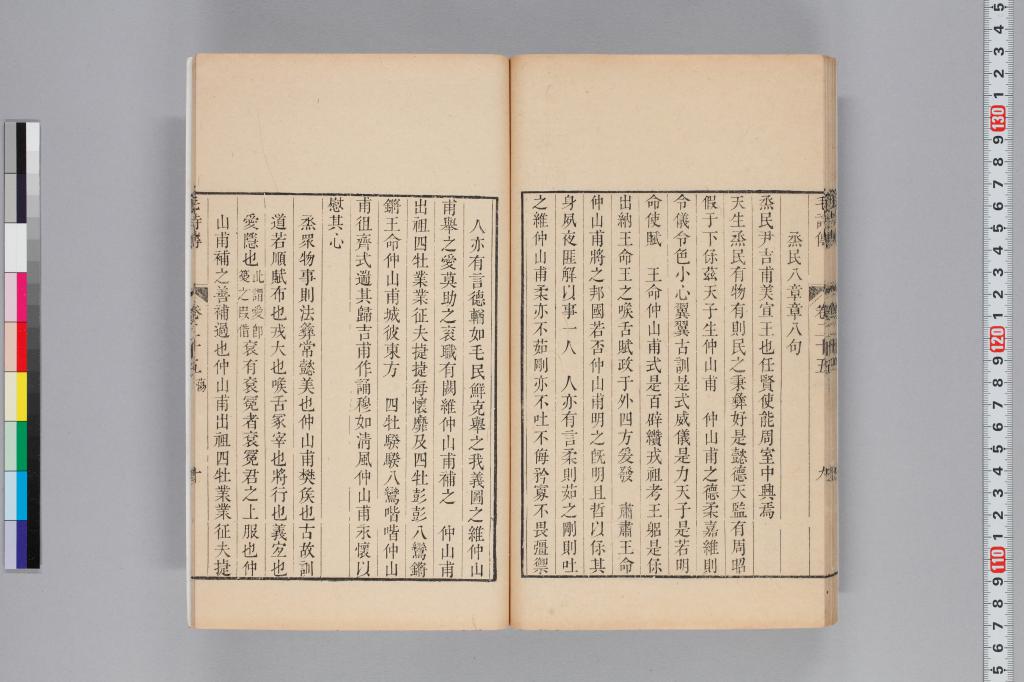 烝民八章章八句
烝民尹吉甫美宣王也任賢使能周室中興焉
天生烝民有物有則民之秉彝好是懿德天監有周昭
假于下保茲天子生仲山甫　仲山甫之德柔嘉維則
令儀令色小心翼翼古訓是式威儀是力天子是若明
命使賦　王命仲山甫式是百辟纘戎祖考王躳是保
出納王命王之喉舌賦政于外四方爰發　肅肅王命
仲山甫將之邦國若否仲山甫明之旣明且哲以保其
身夙夜匪解以事一人　人亦有言柔則茹之剛則吐
之維仲山甫柔亦不茹剛亦不吐不侮矜寡不畏彊禦
人亦有言德輶如毛民鮮克舉之我義圖之維仲山
甫舉之愛莫助之衮職有闕維仲山甫補之　仲山甫
出祖四牡業業征夫捷捷每懷靡及四牡彭彭八鸞鏘
鏘王命仲山甫城彼東方　四牡騤騤八鸞喈喈仲山
甫徂齊式遄其歸吉甫作誦穆如清風仲山甫永懷以
慰其心
烝眾物事則法彝常懿美也仲山甫樊矦也古故訓
道若順賦布也戎大也喉舌冢宰也將行也義宐也
愛隱也此謂愛卽薆之叚借衮有衮冕者衮冕君之上服也仲
山甫補之善補過也仲山甫出祖四牡業業征夫捷
毛詩傳
卷二十五
九
毛詩傳
卷二十五　蕩
十
5
4
3
2
1
130
9
8
7
6
5
4
3
2
1
120
9
8
7
6
5
4
3
2
1
110
9
8
7
6
5